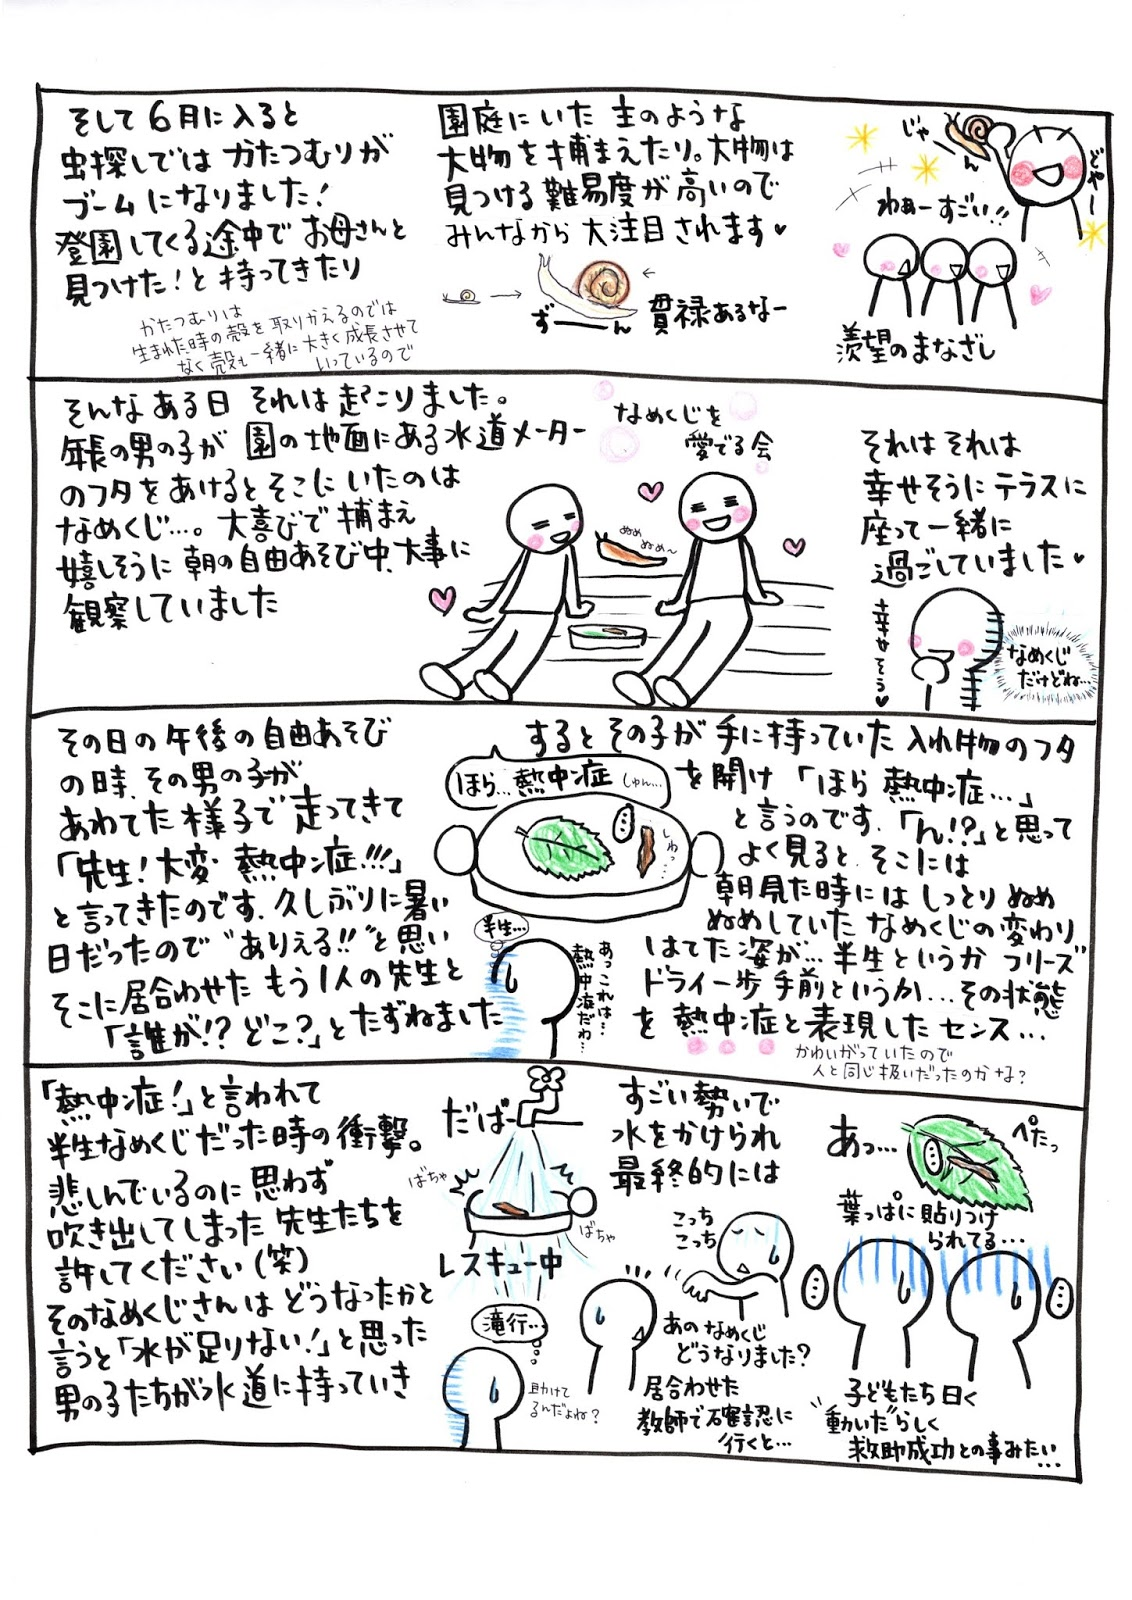 そして6月に入ると
虫探しではかたつむりが
ブームになりました!
登園してくる途中でお母さんと
見つけた!と持ってきたり
かたつむりは
生まれた時の殻を取りかえるのでは
なく殻も一緒に大きく成長させて
いっているので
園庭にいた主のような
大物を捕まえたり。大物は
見つける難易度が高いので
みんなから大注目されます♥
ず――ん
貫禄あるなー
じゃーん
どやー
わぁーすごい!!
羨望のまなざし
そんなある日それは起こりました。
年長の男の子が園の地面にある水道メーター
のフタをあけるとそこにいたのは
なめくじ…。大喜びで捕まえ
嬉しそうに朝の自由あそび中、大事に
観察していました
なめくじを
愛でる会
ぬめ
ぬめ〜
それはそれは
幸せそうにテラスに
座って一緒に
過ごしていました♥
幸せそう♥
なめくじ
だけどね…
その日の午後の自由あそび
の時、その男の子が
あわてた様子で走ってきて
「先生!大変熱中症!!!」
と言ってきたのです。久しぶりに暑い
日だったので"ありえる!!"と思い
そこに居合わせたもう1人の先生と
「誰が!?どこ?」とたずねました
ほら…熱中症 しゅん…
しわっ…
半生…
あっこれは…
熱中症だわ…
するとその子が手に持っていた入れ物のフタ
を開け「ほら熱中症…」
と言うのです。「ん!?」と思って
よく見ると、そこには
朝見た時にはしっとりぬめ
ぬめしていたなめくじの変わり
はてた姿が…半生というかフリーズ
ドライ一歩手前というか…その状態
を熱中症と表現したセンス…
かわいがっていたので
人と同じ扱いだったのかな?
「熱中症!」と言われて
半生なめくじだった時の衝撃。
悲しんでいるのに思わず
吹き出してしまった先生たちを
許してください(笑)
そのなめくじさんはどうなったかと
言うと「水が足りない!」と思った
男の子たちが水道に持っていき
だばー
ばちゃ
ばちゃ
レスキュー中
滝行…
助けて
るんだよね?
すごい勢いで
水をかけられ
最終的には
こっち
こっち
あのなめくじ
どうなりました?
居合わせた
教師で確認に
行くと…
あっ…
ぺたっ
葉っぱに貼りつけ
られてる…
子どもたち曰く
"動いた"らしく
救助成功との事みたい…